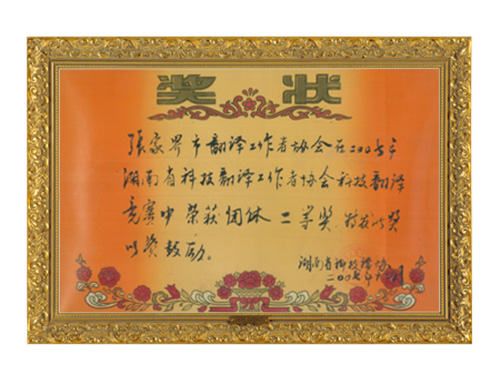 奖状
张家界市翻译工作者协会在二00七年
湖南省科技翻译工作者协会科技翻译
竞赛中荣获团体二等奖,特发此奖
以资鼓励。
湖南省科技译协
二00七年